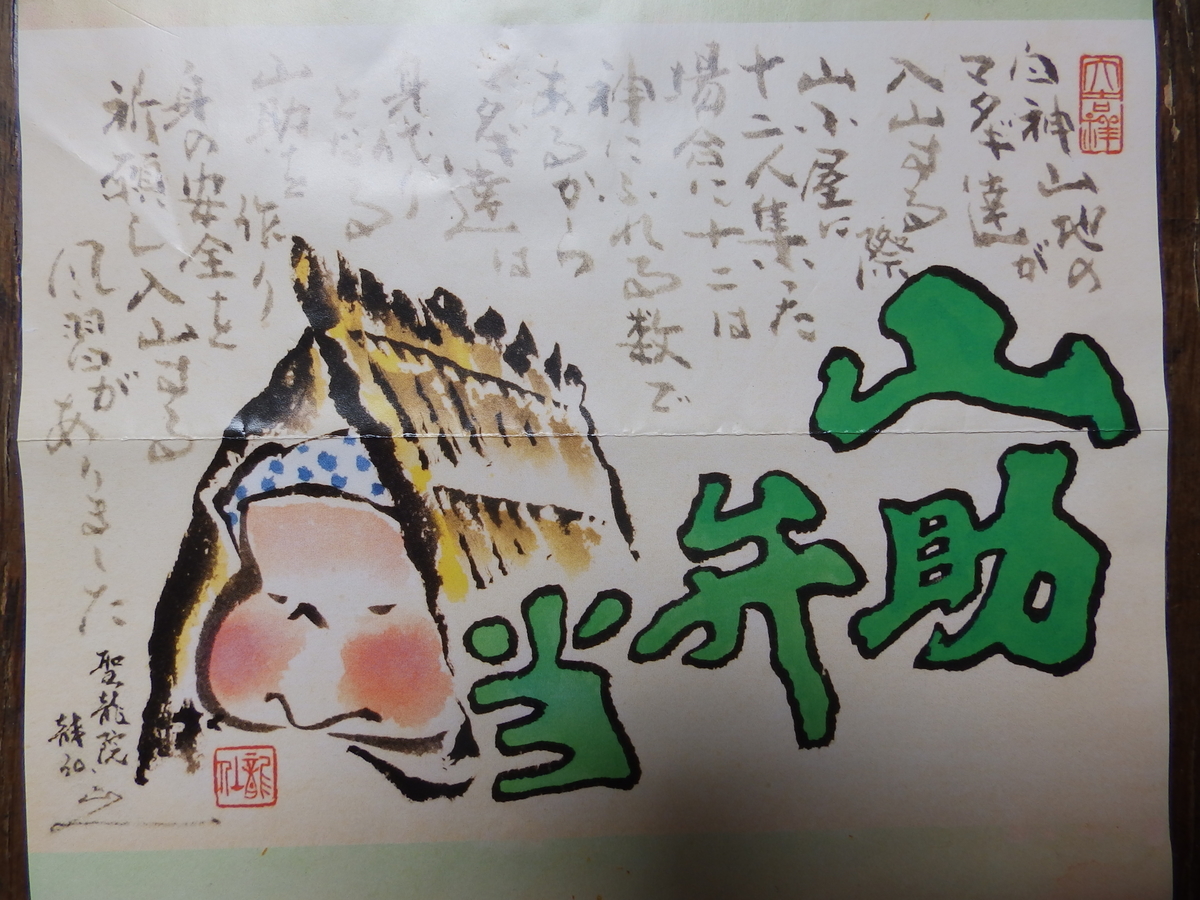 大吉祥
白神山地の
マタギ達が
入山する
際
山小屋に
十二人集った
場合に十二は
神にふれる数で
あるから
マタギ達は
身代り
となる
山助を
作り
身の安全を
祈願し入山する
風習が
ありました
山助
弁
当
聖龍院
龍仙